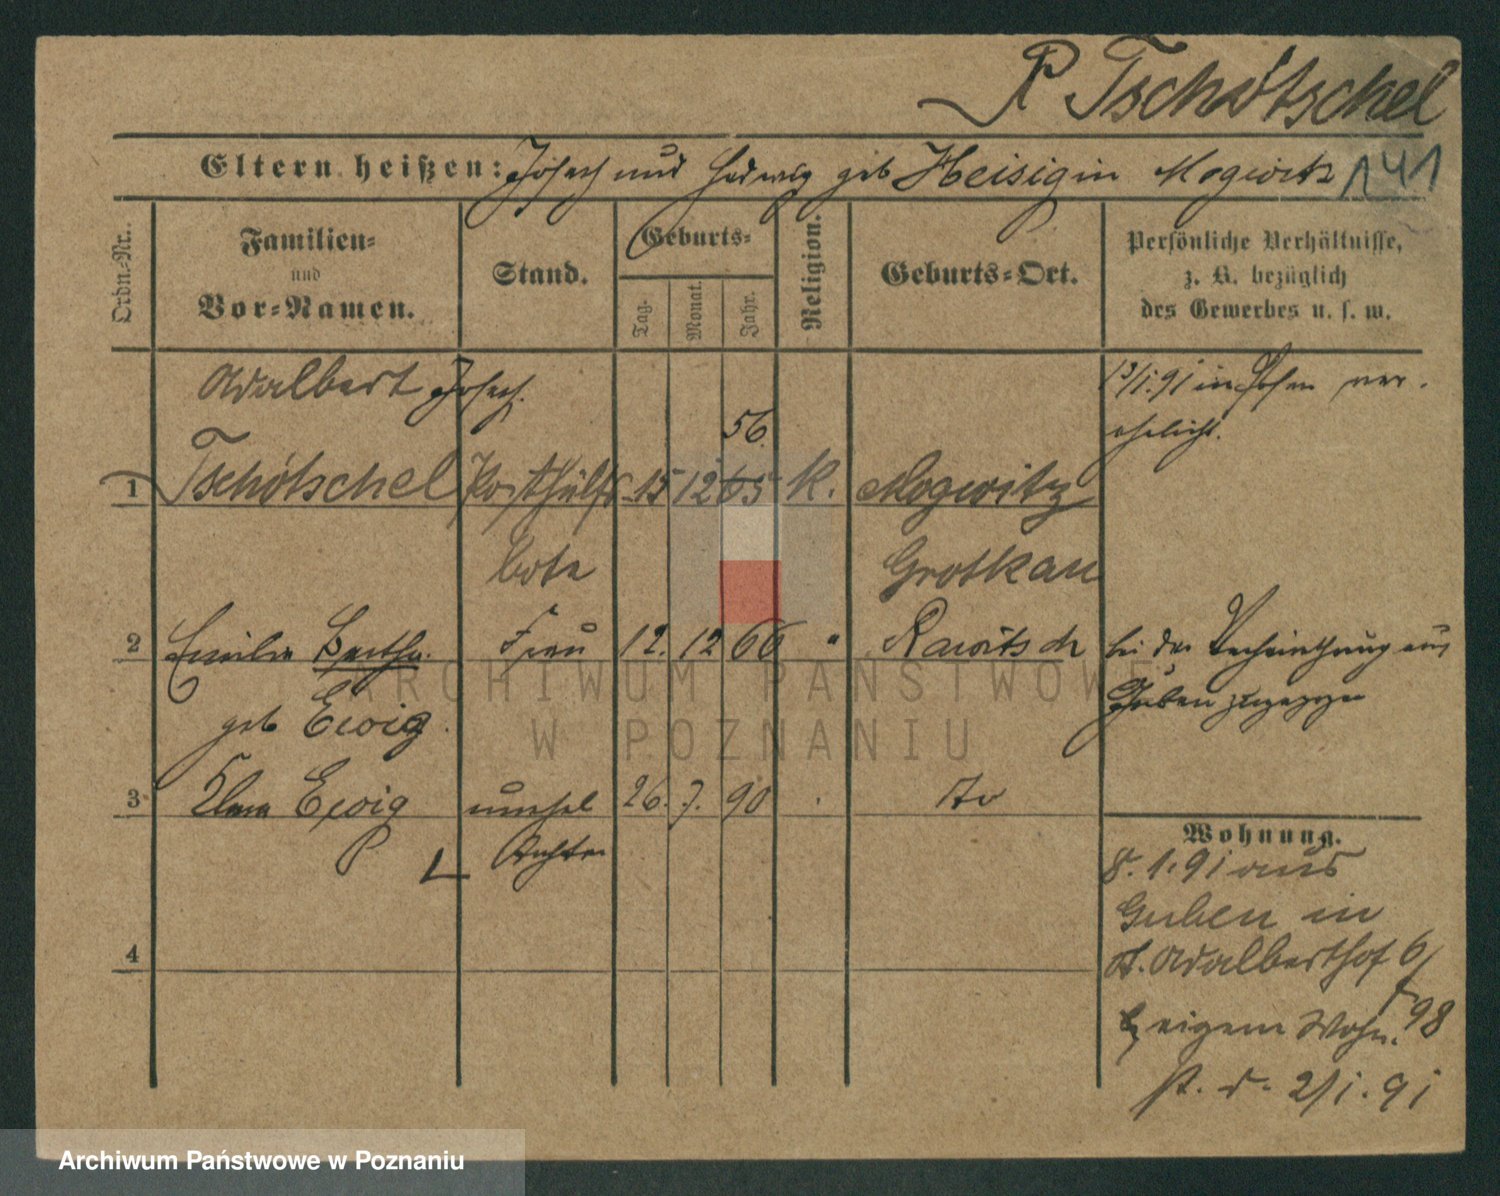 P Tschötschel
Eltern heißen: Josef und Hedwig geb Heisig in Mogwitz 141
Ordn.-Nr. Familien- und Vor-Namen. Stand. Geburts- Tag. Monat. Jahr. Religion. Geburts-Ort. Persönliche Verhältnisse, z. B. bezüglich des Gewerbes u. s. w.
Adalbert Josef. 13/1.91 in Posen ver-
56. ehelicht.
1 Tschötschel Posthülfs 15 12 65 K. Mogwitz
bote Grotkau
2 Emilie Bertha. Frau 12. 12 66 " Rawitsch bei der Verheirathung aus
geb Ewig. Guben zugezogen
3 Ewig unehel 26. 7. 90 do
Tochter
Wohnung.
8. 1. 91 aus
Guben in
St. Adalberthof 6/
4
98
eigene Wohn.
2/1. 91
ARCHIWUM PAŃSTWOWE
W POZNANIU
Archiwum Państwowe w Poznaniu